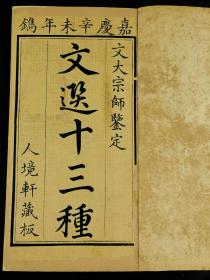 嘉慶辛未年鐫
文大宗師鑒定
文選十三種
人境軒藏板